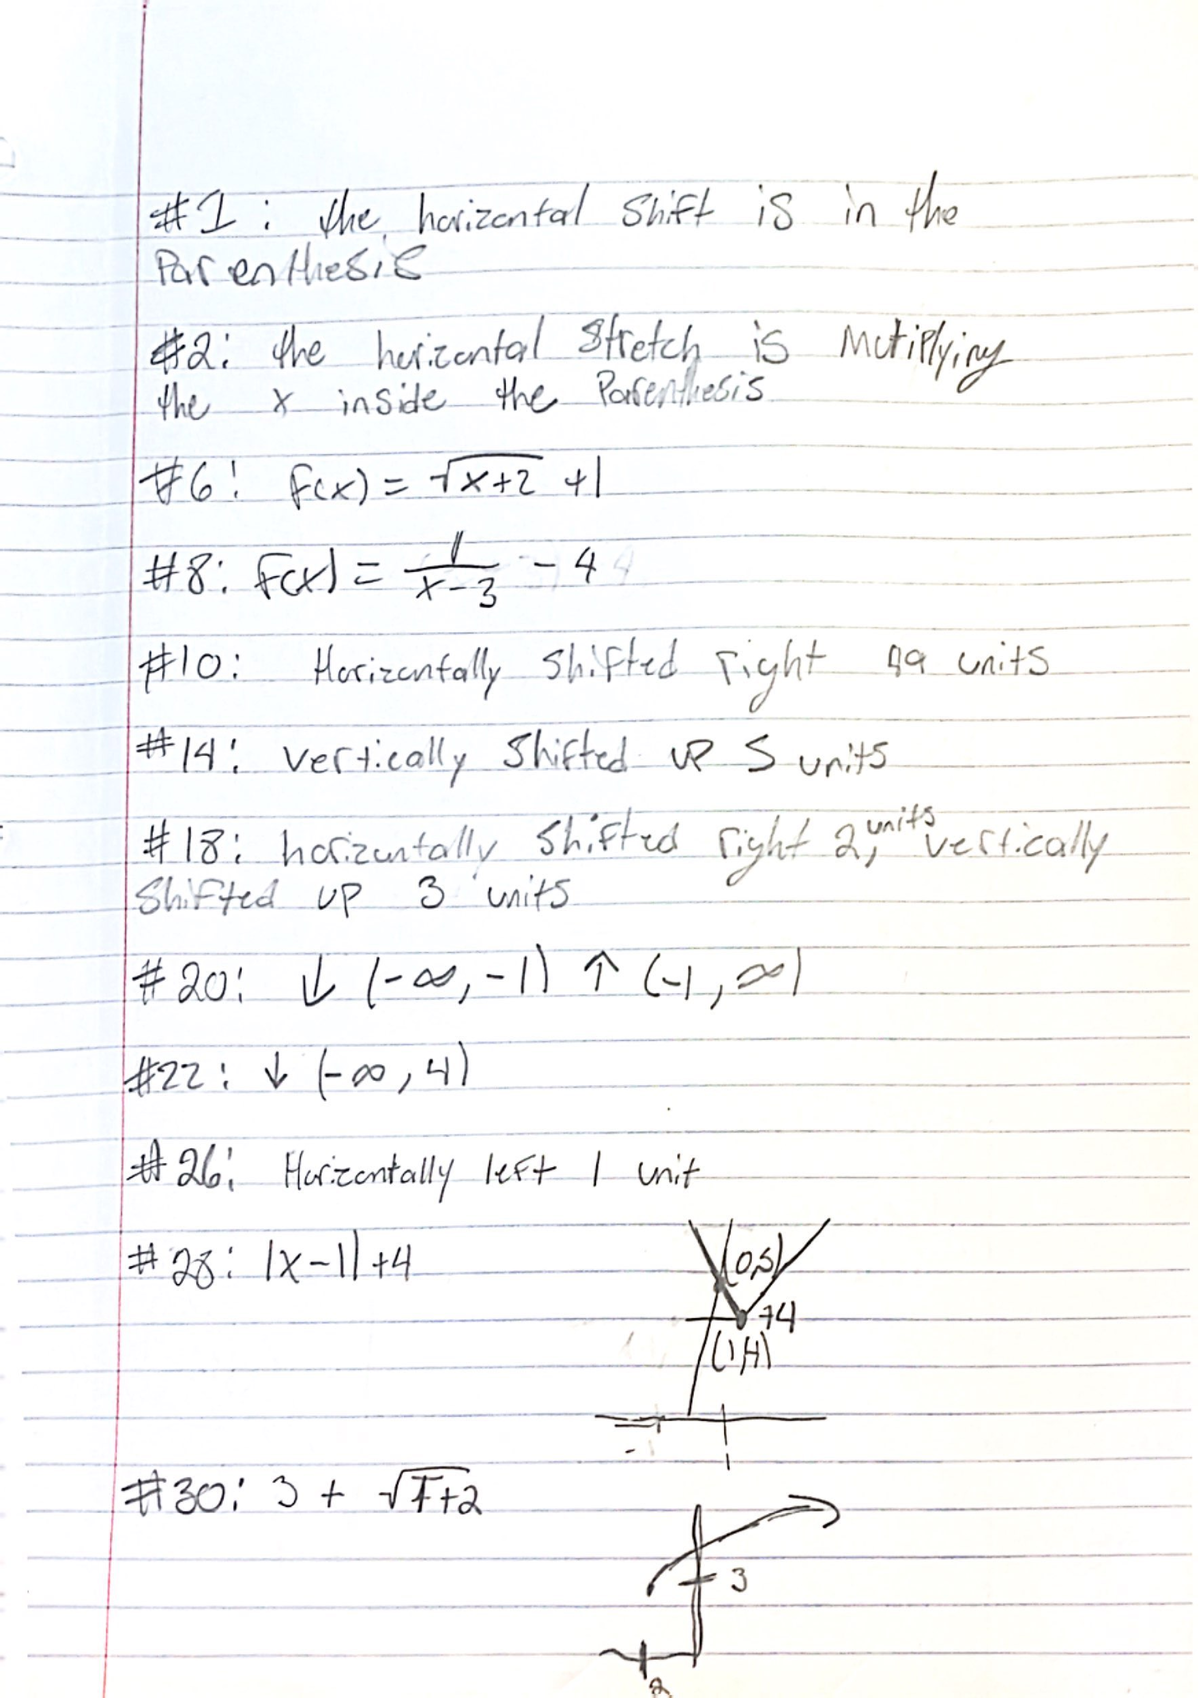 #1: the horizontal shift is in the
Parenthesis
#2: the horizontal stretch is Mutiplying
the x inside the Parenthesis
#6: f(x) = √x+2 +1
#8: F(x) = 1/x-3 - 4
#10: Horizontally shifted right 49 units
#14: vertically shifted up 5 units
#18: horizontally shifted right 2, units vertically
shifted up 3 units
#20: ↓ (-∞, -1) ↑ (-1, ∞)
#22: ↓ (-∞, 4)
#26: Horizontally left 1 unit
#28: |x-1|+4
(0,5)
+4
(1,4)
#30: 3 + √T+2
3
2